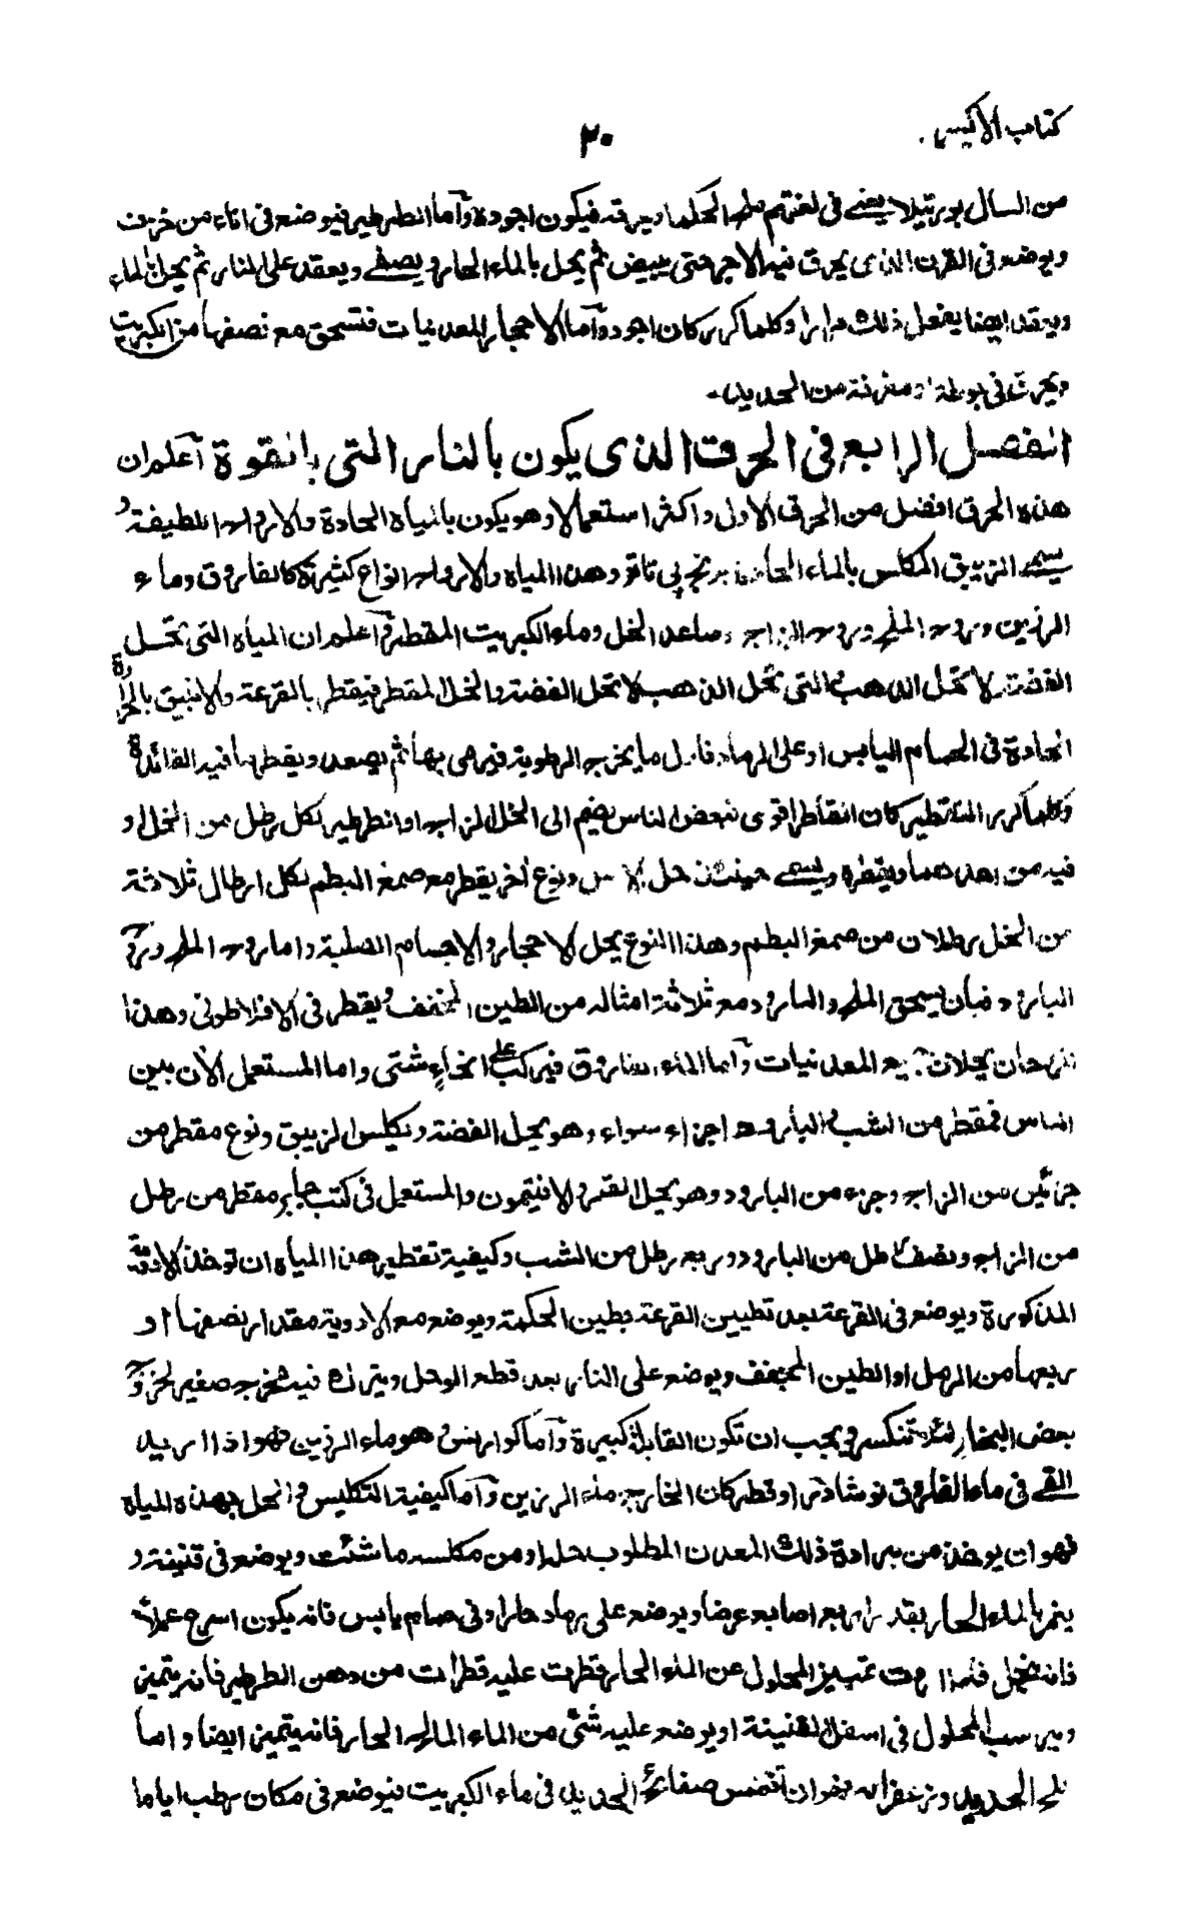 كتاب الاكسير
٢٠
من السال بويتيلا يعني في لغتهم ملح الحكما ويحرقه فيكون اجود وآما الطرطير فيوضع في اناء من خزف
ويوضع في القرن الذي يحرق فيه الاجر حتى يبيض ثم يحل بالماء الحار ويصفى ويعقد على النار ثم يحل بالماء
ويعقد ايضا يفعل ذلك مرارا وكلما كرر كان اجود وآما الاحجار المعدنيات فتسحق مع نصفها من الكبريت
ويحرق في بوطة او مغرفة من الحديد
الفصل الرابع في الحرق الذي يكون بالنار التي بالقوة آعلم ان
هذه الحرق افضل من الحرق الاول واكثر استعمالا وهو يكون بالمياه الحادة والارواح اللطيفة و
يسمى الزيبق المكلس بالماء الحاد وهذا المياه والارواح انواع كثيرة كالفاروق وماء
الرزين وروح الملح وروح الزاج وصاعد الخل وماء الكبريت المقطر وآعلم ان المياه التي تحل
الفضة لا تحل الذهب والتي تحل الذهب لا تحل الفضة والخل المقطر فيقطر بالقرعة والانبيق بالحرارة
الحادة في الحمام اليابس او على الرماد فاول ما يخرج الرطوبة فيرمى بها ثم يصعد ويقطر ما فيه الفائدة
وكلما كرر التقطير كان القاطر اقوى فبعض الناس يضم الى الخل الزاج او الطرطير لكل رطل من الخل او
فيه من احدهما ويقطره ويسمى حينئذ خل ونوع اخر يقطر مع صمغ البطم لكل ارطال ثلاثة
من الخل رطلان من صمغ البطم وهذا النوع يحل الاحجار والاجسام الصلبة واما روح الملح وروح
البارود فبان يسحق الملح والبارود مع ثلاثة امثاله من الطين المجفف ويقطر في الافلاطوني وهذا
الروحان يحلان جميع المعدنيات وآما الماء الفاروق فيركب على انحاء شتى واما المستعمل الان بين
الناس فمقطر من الشب والبارود اجزاء سواء وهو يحل الفضة ويكلس الزيبق ونوع مقطر من
جزئين من الزاج وجزء من البارود وهو يحل القمر والانتيمون والمستعمل في كتب جابر مقطر من رطل
من الزاج ونصف رطل من البارود وربع رطل من الشب وكيفية تقطير هذا المياه ان توخذ الادوية
المذكورة ويوضع في القرعة بعد تطيين القرعة بطين الحكمة ويوضع مع الادوية مقدار نصفها او
ربعها من الرمل او الطين المجفف ويوضع على النار بعد قطع الوصل ويترك فيه مخرج صغير لخروج
بعض البخار لئلا تنكسر ويجب ان تكون القابلة كبيرة وآما وهو ماء الرزين فهو اذا اريد
القي في ماء الفاروق نوشادر او قطر كان الخارج ماء الرزين وآما كيفية التكليس والحل بهذه المياه
فهو ان يوخذ من برادة ذلك المعدن المطلوب حله او من مكلسه ما شئت ويوضع في قنينة و
يغمر بالماء الحار بقدر اربع اصابع عرضا ويوضع على رماد حار او في حمام يابس فانه يكون اسرع عملا
فانه ينحل فاذا اردت تمييز المحلول عن الماء الحار قطرت عليه قطرات من دهن الطرطير فانه يتميز
ويرسب المحلول في اسفل القنينة او يوضع عليه شئ من الماء المالح الحار فانه يتميز ايضا واما
ملح الحديد وزعفرانه فهو ان تغمس صفائح الحديد في ماء الكبريت فيوضع في مكان رطب اياما